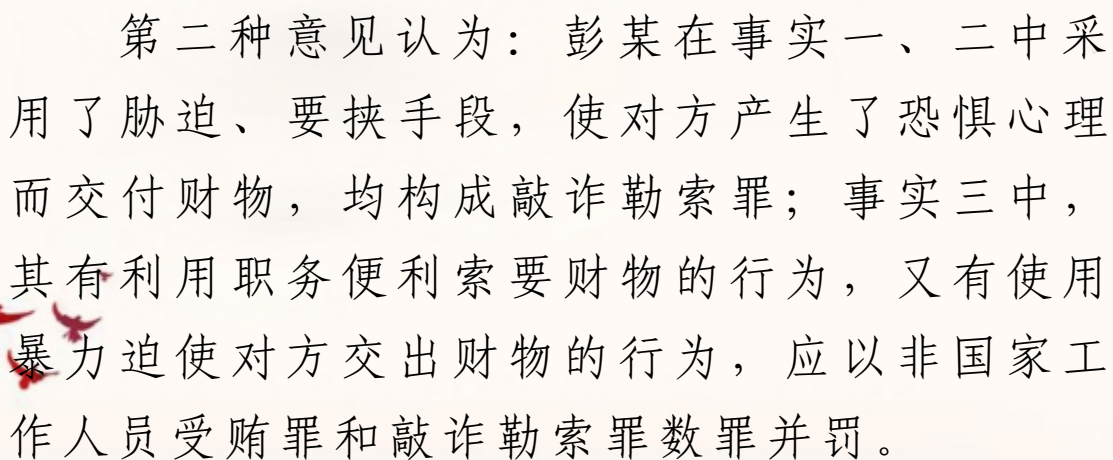 第二种意见认为：彭某在事实一、二中采
用了胁迫、要挟手段，使对方产生了恐惧心理
而交付财物，均构成敲诈勒索罪；事实三中，
其有利用职务便利索要财物的行为，又有使用
暴力迫使对方交出财物的行为，应以非国家工
作人员受贿罪和敲诈勒索罪数罪并罚。